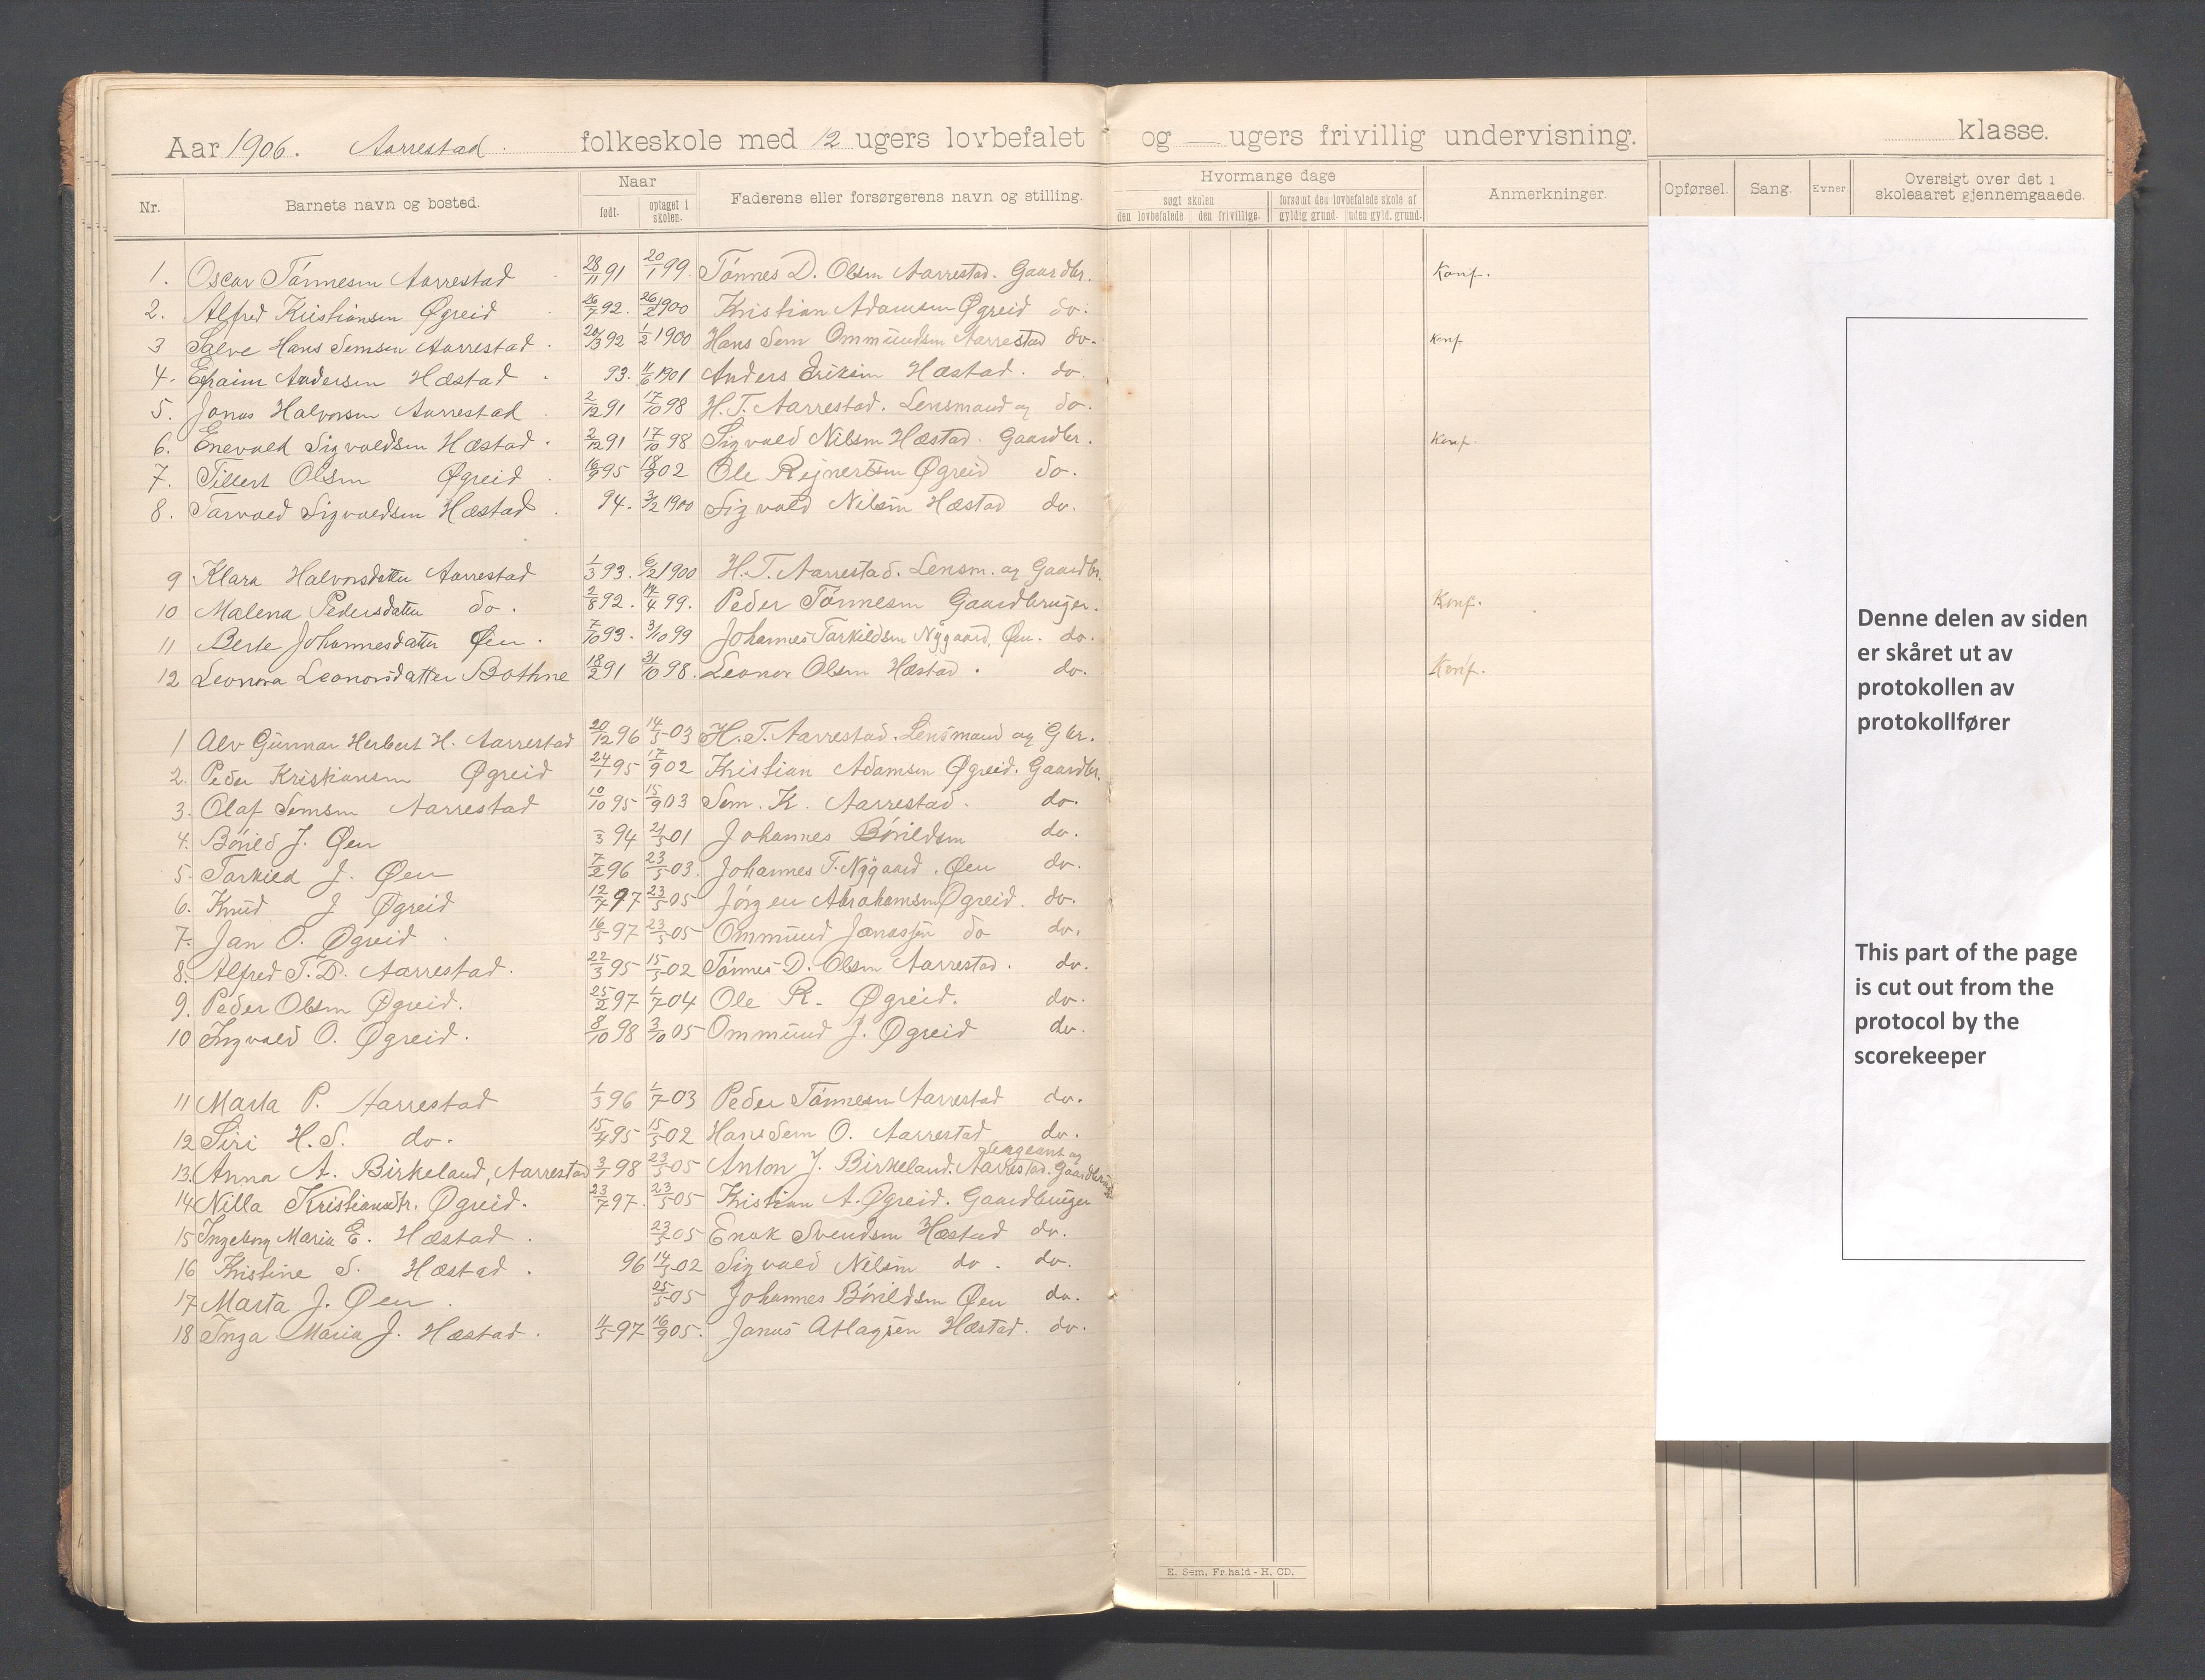 Aar 1906. Aarrestad folkeskole med 12 ugers lovbefalet og — ugers frivillig undervisning. klasse.
Nr. Barnets navn og bosted. Naar født. optaget i skolen. Faderens eller forsørgerens navn og stilling. Hvormange dage søgt skolen den lovbefalede den frivillige. forsømt den lovbefalede skole af gyldig grund. uden gyld. grund. Anmerkninger. Opførsel. Sang. Evner. Oversigt over det i skoleaaret gjennemgaaede.
1. Oscar Tønnesen Aarrestad 28/11 91 20/1 99. Tønnes D. Olsen Aarrestad. Gaardbr. Konf.
2. Alfred Kristiansen Øgreid 26/7 92. 26/2 1900 Kristian Adamsen Øgreid do.
3 Salve Hans Semsen Aarrestad. 20/3 92 1/2 1900 Hans Sem Ommundsen Aarrestad do. Konf.
4. Efraim Andersen Hæstad. 93. 11/6 1901 Anders Eriksen Hæstad. do.
5. Jonas Halvorsen Aarrestad 2/12 91 17/10 98 H. T. Aarrestad. Lensmand og do.
6. Enevald Sigvaldsen Hæstad. 2/12 91 17/10 98 Sigvald Nilsen Hæstad. Gaardbr. Konf.
7. Tillert Olsen Øgreid 16/9 95 18/9 02 Ole Rejnertsen Øgreid do.
8. Tarvald Sigvaldsen Hæstad 94. 3/2 1900 Sigvald Nilsen Hæstad do.
9 Klara Halvorsdatter Aarrestad 1/3 93. 6/2 1900 H. T. Aarrestad. Lensm. og Gaardbr.
10 Malena Pedersdatter do. 2/8 92. 14/4 99. Peder Tønnesen Gaardbruger. Konf.
11 Berte Johannesdatter Øen. 7/10 93. 3/10 99 Johannes Tarkildsen Nygaard, Øen. do.
12 Leonora Leonorsdatter Bothne 18/2 91 31/10 98. Leonor Olsen Hæstad. do. Konf.
1 Alv Gunnar Herbert H. Aarrestad 20/12 96 14/5 03 H. T. Aarrestad. Lensmand og Gbr.
2. Peder Kristiansen Øgreid 24/1 95 17/9 02 Kristian Adamsen Øgreid. Gaardbr.
3. Olaf Semsen Aarrestad 10/10 95 15/9 03 Sem. K. Aarrestad. do.
4. Børild J. Øen -/3 94 21/5 01 Johannes Børildsen do.
5. Tarkild J. Øen 7/2 96 23/5 03. Johannes T. Nygaard. Øen do.
6. Knud J Øgreid 12/7 97 23/5 05 Jørgen Abrahamsen Øgreid. do.
7. Jan O. Øgreid 16/5 97 23/5 05 Ommund Janassen do do.
8. Alfred T. D. Aarrestad. 22/3 95 15/5 02 Tønnes D. Olsen Aarrestad. do.
9. Peder Olsen Øgreid. 25/2 97 1/7 04 Ole R. Øgreid. do.
10 Ingvald O. Øgreid. 8/10 98 3/10 05 Ommund J. Øgreid do.
11 Marta P. Aarrestad 1/3 96 1/7 03 Peder Tønnesen Aarrestad do.
12 Siri H. S. do. 15/4 95 15/5 02 Hans Sem O. Aarrestad do.
13. Anna A. Birkeland, Aarrestad 3/1 98 23/5 05 Anton J. Birkeland. Aarrestad. Sergeant og Gaardbruger
14 Nilla Kristiansdtr. Øgreid. 23/7 97. 23/5 05 Kristian A. Øgreid. Gaardbruger
15 Ingeborg Maria E. Hæstad. 23/5 05 Enok Svendsen Hæstad do.
16 Kristine S. Hæstad. 96 14/5 02 Sigvald Nilsen do. do.
17 Marta J. Øen. 25/5 05 Johannes Børildsen Øen do.
18 Inga Maria J. Hæstad. 11/5 97 16/9 05. Janus Atlagsen Hæstad. do.
E. Sem, Fr.hald - H. CD.
Denne delen av siden
er skåret ut av
protokollen av
protokollfører
This part of the page
is cut out from the
protocol by the
scorekeeper